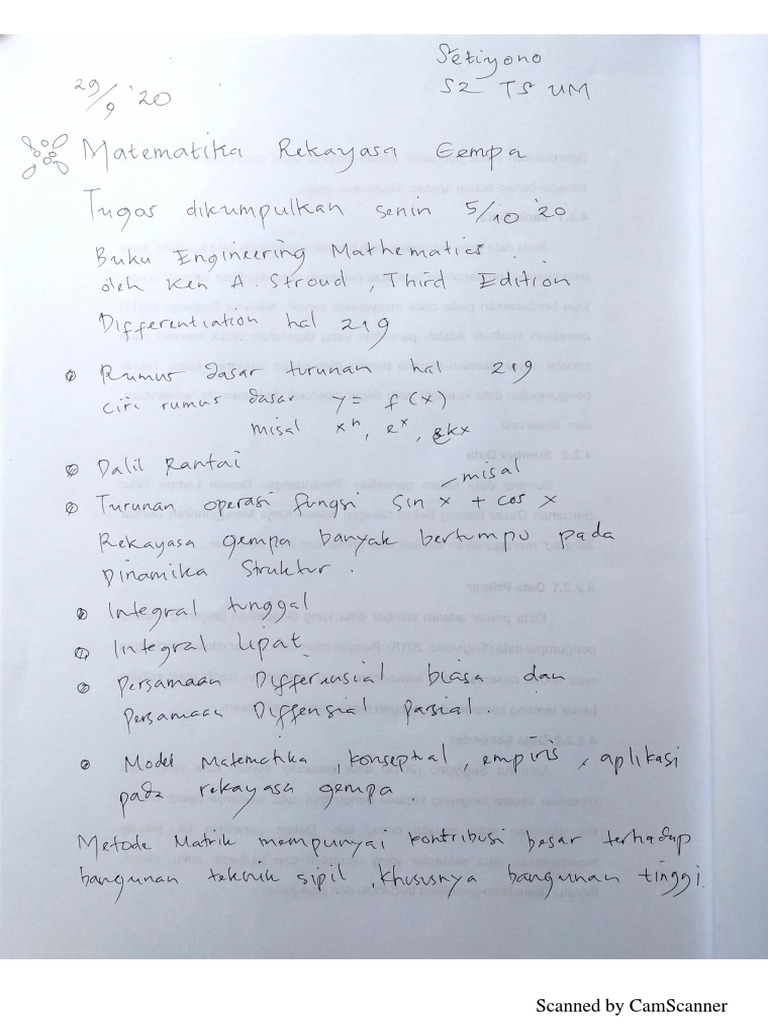 Setiyono
29/9 '20
S2 TS UM
Matematika Rekayasa Gempa
Tugas dikumpulkan senin 5/10 '20
Buku Engineering Mathematics.
oleh Ken A. Stroud, Third Edition
Differentiation hal 219
Rumus dasar turunan hal 219
ciri rumus dasar y = f(x)
misal x^n, e^x, e^kx
Dalil Rantai
misal
Turunan operasi fungsi sin x + cos x
Rekayasa gempa banyak bertumpu pada
Dinamika Struktur.
Integral tunggal
Integral Lipat
Persamaan Differensial biasa dan
Persamaan Diffensial Pasial.
Model Matematika, konseptual, empiris, aplikasi
pada rekayasa gempa
Metode Matrik mempunyai kontribusi besar terhadap
bangunan teknik sipil, khususnya bangunan tinggi.
Scanned by CamScanner